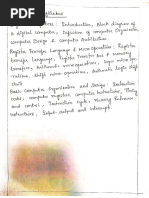 Syllabus
Introduction, Block diagram of
a digital computer, Definition of computer Organization,
computer Design & Computer Architecture.
Register Transfer Language & Micro operation: Register
transfer language, Register Transfer Bus & memory
transfers, Arithmetic micro operations, logic micro ope-
rations, shift micro operations, Arithmetic logic shift
unit.
Basic Computer Organization and Design: Instruction
codes, computer register computer instructions, Timing
and control, Instruction cycle, Memory Reference
Instructions, Input output and interrupt.